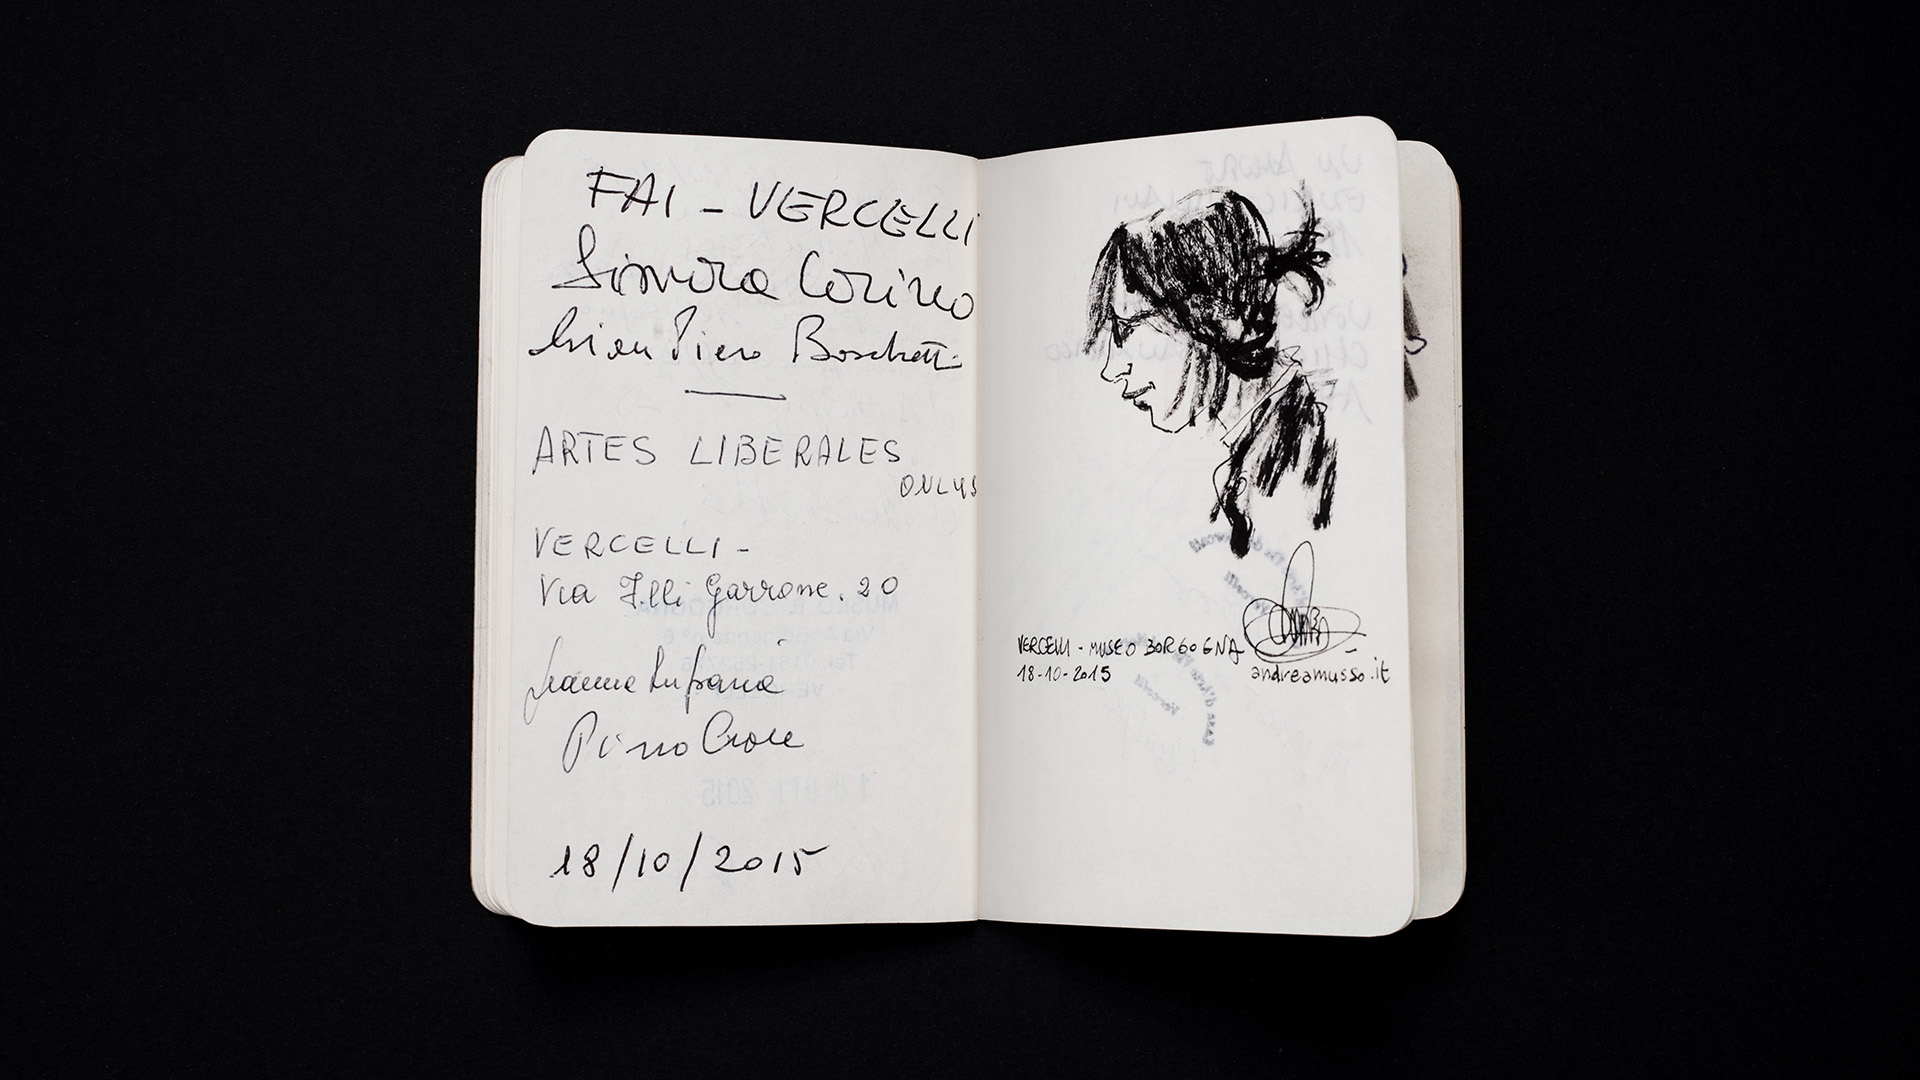 FAI - VERCELLI
Simona Corino
Gian Piero Boschetti
ARTES LIBERALES
ONLUS
VERCELLI -
Via F.lli Garrone. 20
Pino Croce
18/10/2015
VERCELLI - MUSEO BORGOGNA
18-10-2015
andreamusso.it